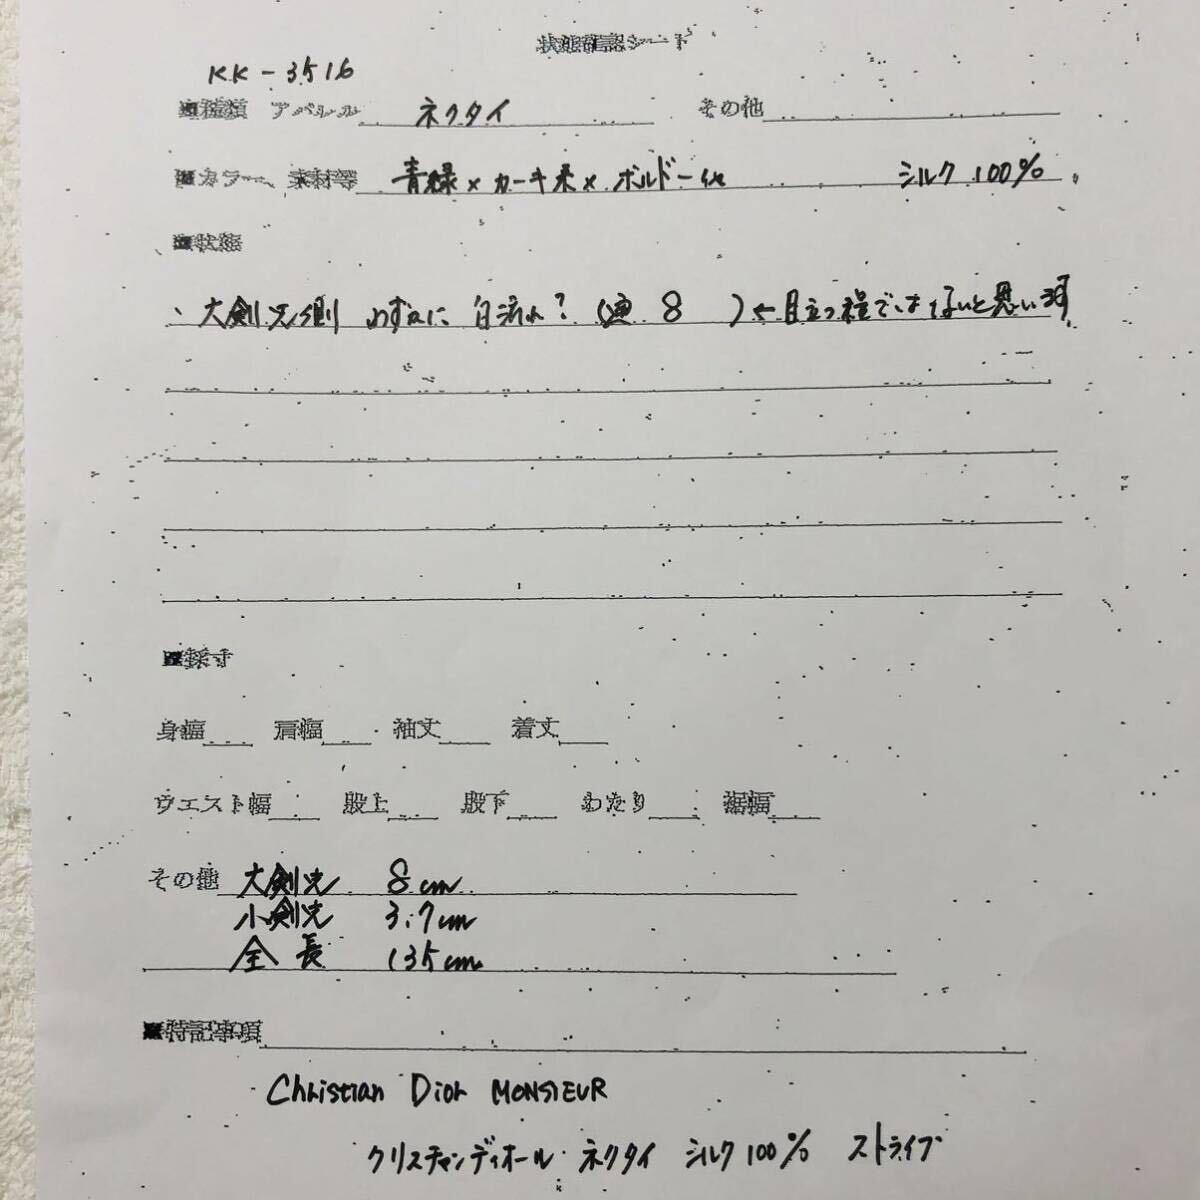 状態確認シート
KK-3516
■種類 アパレル ネクタイ その他
■カラー、素材等 青緑×カーキ系×ボルドー他 シルク 100%
■状態
、大剣先側 わずかに 白流れ?(画 8 )←目立つ程ではないと思います
■採寸
身幅 肩幅 袖丈 着丈
ウエスト幅 股上 股下 わたり 裾幅
その他 大剣先 8cm
小剣先 3.7cm
全長 135cm
■特記事項
Christian Dior MONSIEUR
クリスチャンディオール ネクタイ シルク100% ストライプ